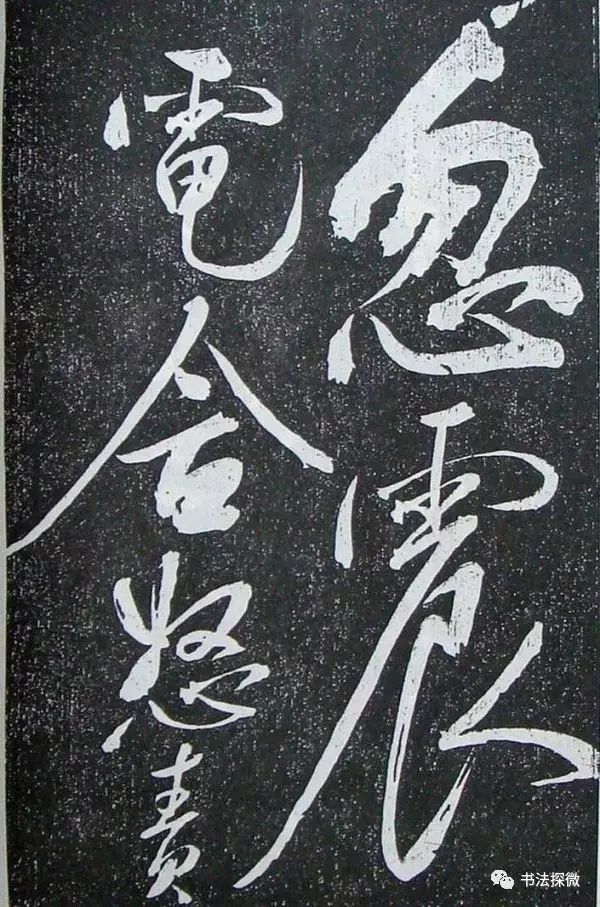 忽震
電含怒責
书法探微